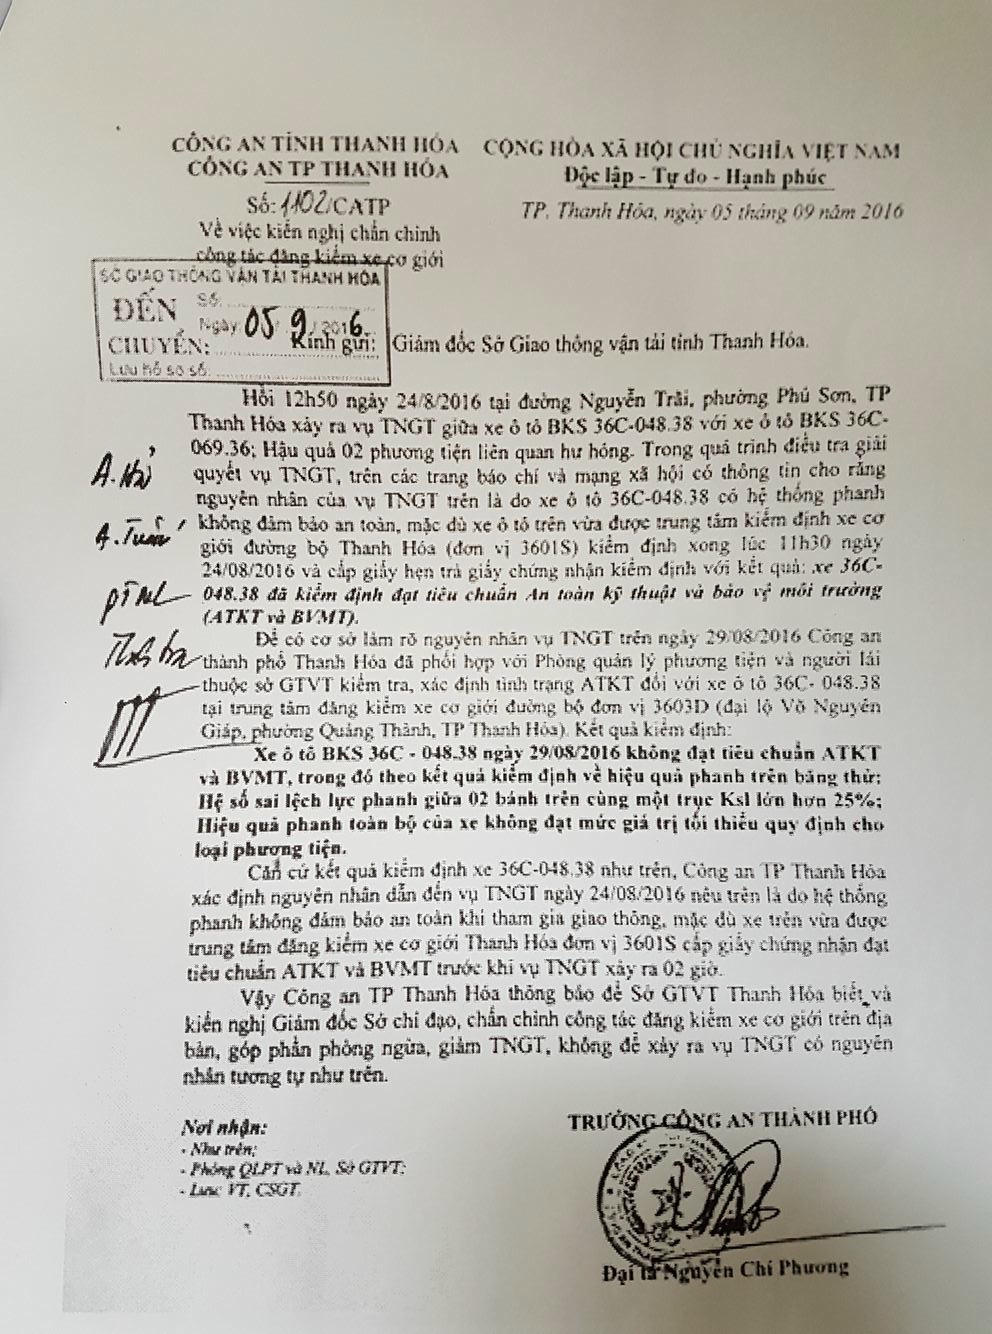 CÔNG AN TỈNH THANH HÓA
CÔNG AN TP THANH HÓA
CỘNG HÒA XÃ HỘI CHỦ NGHĨA VIỆT NAM
Độc lập - Tự do - Hạnh phúc
Số: 1102/CATP
TP. Thanh Hóa, ngày 05 tháng 09 năm 2016
Về việc kiến nghị chấn chỉnh
công tác đăng kiểm xe cơ giới
SỞ GIAO THÔNG VẬN TẢI THANH HÓA
ĐẾN
Số:
Ngày: 05/9/2016
CHUYỂN:
Lưu hồ sơ số:
Kính gửi: Giám đốc Sở Giao thông vận tải tỉnh Thanh Hóa.
Hồi 12h50 ngày 24/8/2016 tại đường Nguyễn Trãi, phường Phú Sơn, TP
Thanh Hóa xảy ra vụ TNGT giữa xe ô tô BKS 36C-048.38 với xe ô tô BKS 36C-
069.36; Hậu quả 02 phương tiện liên quan hư hỏng. Trong quá trình điều tra giải
quyết vụ TNGT, trên các trang báo chí và mạng xã hội có thông tin cho rằng
nguyên nhân của vụ TNGT trên là do xe ô tô 36C-048.38 có hệ thống phanh
không đảm bảo an toàn, mặc dù xe ô tô trên vừa được trung tâm kiểm định xe cơ
giới đường bộ Thanh Hóa (đơn vị 3601S) kiểm định xong lúc 11h30 ngày
24/08/2016 và cấp giấy hẹn trả giấy chứng nhận kiểm định với kết quả: xe 36C-
048.38 đã kiểm định đạt tiêu chuẩn An toàn kỹ thuật và bảo vệ môi trường
(ATKT và BVMT).
Để có cơ sở làm rõ nguyên nhân vụ TNGT trên ngày 29/08/2016 Công an
thành phố Thanh Hóa đã phối hợp với Phòng quản lý phương tiện và người lái
thuộc sở GTVT kiểm tra, xác định tình trạng ATKT đối với xe ô tô 36C- 048.38
tại trung tâm đăng kiểm xe cơ giới đường bộ đơn vị 3603D (đại lộ Võ Nguyên
Giáp, phường Quảng Thành, TP Thanh Hóa). Kết quả kiểm định:
Xe ô tô BKS 36C - 048.38 ngày 29/08/2016 không đạt tiêu chuẩn ATKT
và BVMT, trong đó theo kết quả kiểm định về hiệu quả phanh trên băng thử:
Hệ số sai lệch lực phanh giữa 02 bánh trên cùng một trục Ksl lớn hơn 25%;
Hiệu quả phanh toàn bộ của xe không đạt mức giá trị tối thiểu quy định cho
loại phương tiện.
Căn cứ kết quả kiểm định xe 36C-048.38 như trên, Công an TP Thanh Hóa
xác định nguyên nhân dẫn đến vụ TNGT ngày 24/08/2016 nêu trên là do hệ thống
phanh không đảm bảo an toàn khi tham gia giao thông, mặc dù xe trên vừa được
trung tâm đăng kiểm xe cơ giới Thanh Hóa đơn vị 3601S cấp giấy chứng nhận đạt
tiêu chuẩn ATKT và BVMT trước khi vụ TNGT xảy ra 02 giờ.
Vậy Công an TP Thanh Hóa thông báo để Sở GTVT Thanh Hóa biết và
kiến nghị Giám đốc Sở chỉ đạo, chấn chỉnh công tác đăng kiểm xe cơ giới trên địa
bàn, góp phần phòng ngừa, giảm TNGT, không để xảy ra vụ TNGT có nguyên
nhân tương tự như trên.
Nơi nhận:
- Như trên;
- Phòng QLPT và NL, Sở GTVT;
- Lưu: VT, CSGT.
TRƯỞNG CÔNG AN THÀNH PHỐ
Đại tá Nguyễn Chí Phương